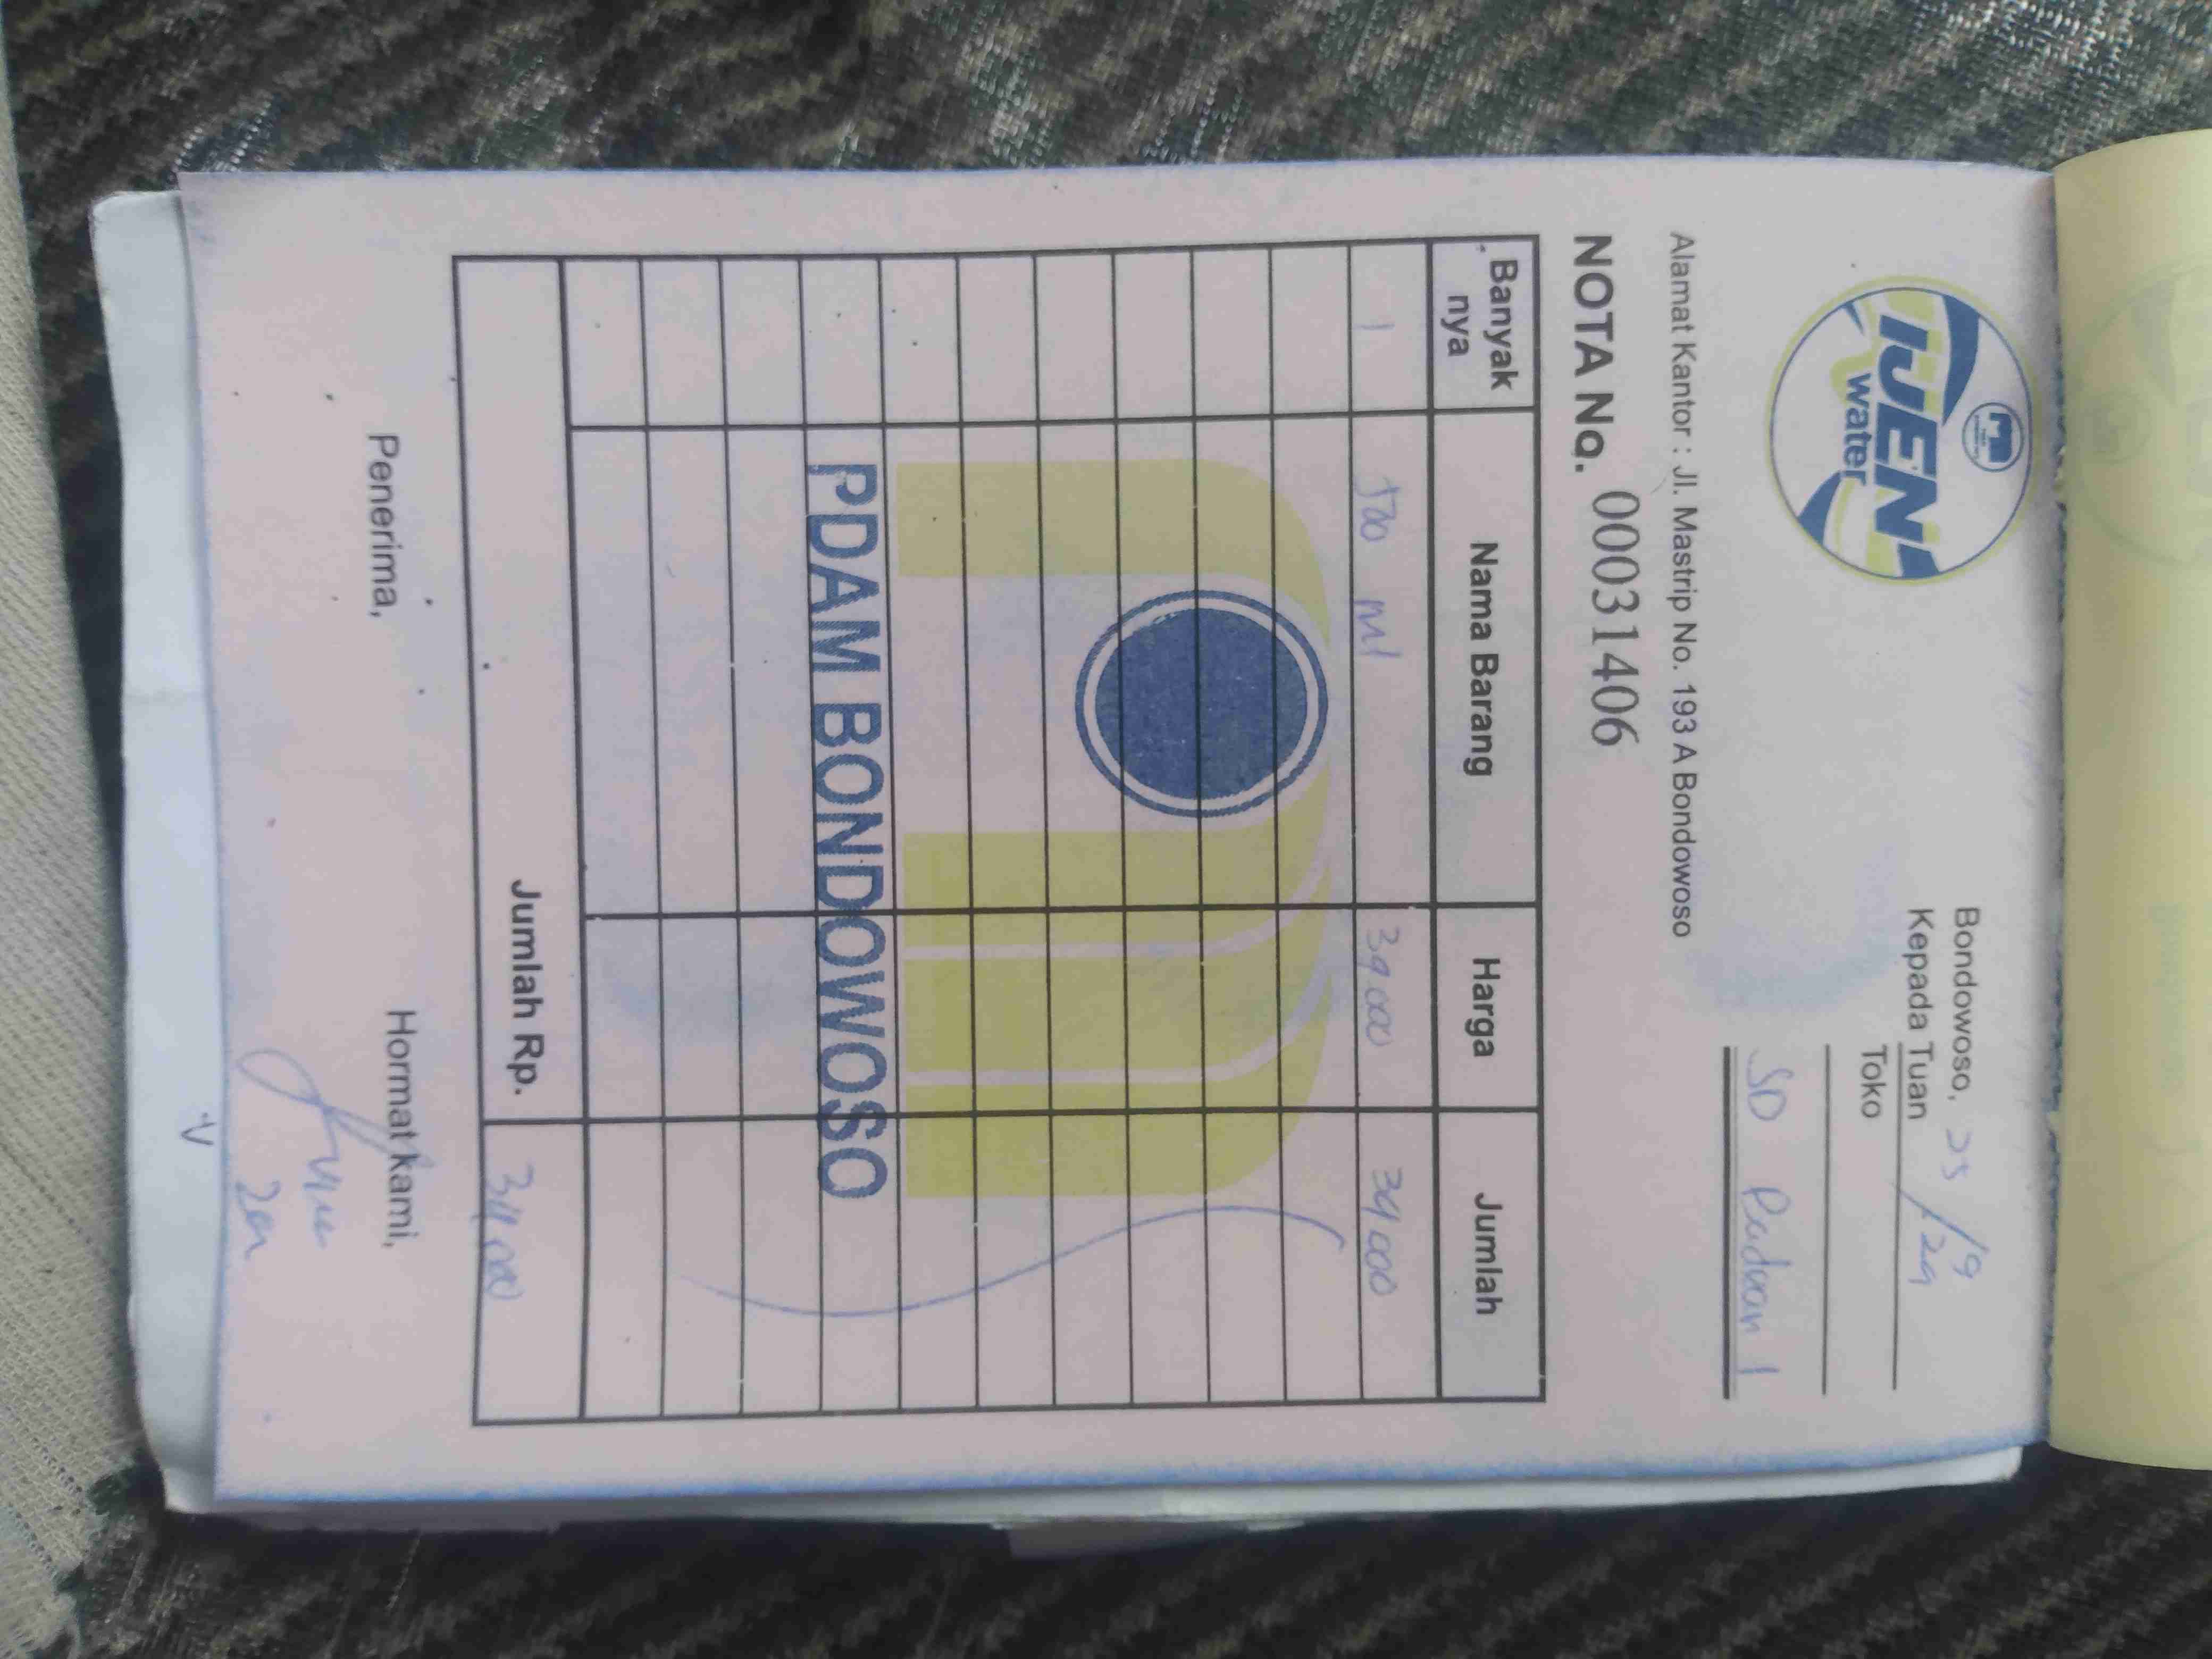 IJEN
water
Bondowoso, 25/9
Kepada Tuan /24
Toko
SD Padwan 1
Alamat Kantor : Jl. Mastrip No. 193 A Bondowoso
NOTA No. 00031406
Banyak nya Nama Barang Harga Jumlah
1 500 ml 39000 39000
PDAM BONDOWOSO
Jumlah Rp. 39000
Penerima, Hormat kami,